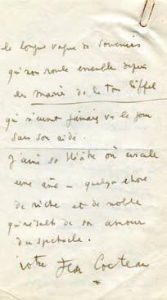 la longue vague de souvenirs
qui nous roule ensemble depuis
les Mariés de la tour Eiffel
qui n'eurent jamais vu le jour
sans son aide.
J'aime ce théâtre où circule
une âme — quelque chose
de riche et de noble
qui résulte de son amour
du spectacle.
votre Jean Cocteau
*